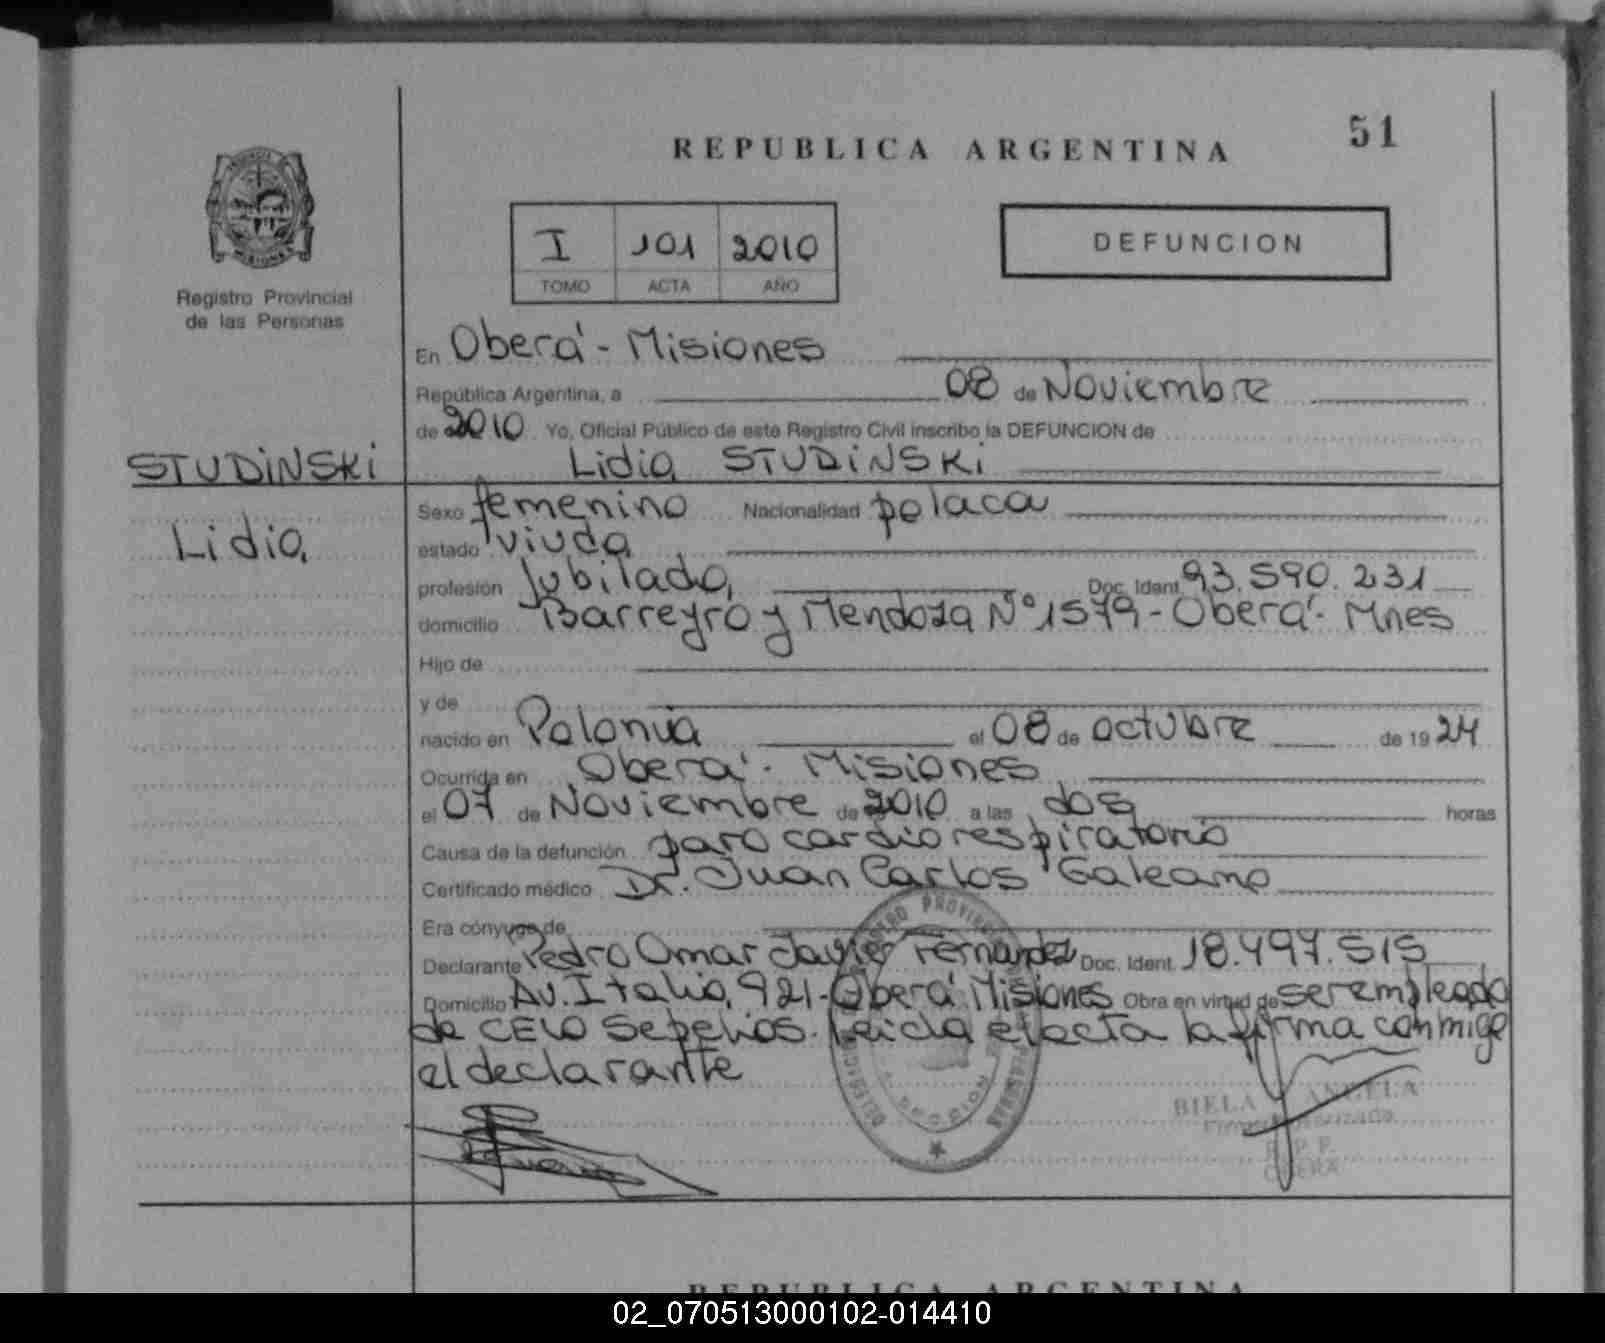 51
REPUBLICA ARGENTINA
I 101 2010
TOMO ACTA AÑO
DEFUNCION
Registro Provincial
de las Personas
En Oberá - Misiones
República Argentina, a 08 de Noviembre
de 2010 Yo, Oficial Público de este Registro Civil inscribo la DEFUNCION de
STUDINSKI
Lidia STUDINSKI
Lidia
Sexo femenino Nacionalidad polaca
estado viuda
profesión Jubilada, Doc. Ident. 93.590.231
domicilio Barreyro y Mendoza Nº 1579 - Oberá - Mnes
Hijo de
y de
nacido en Polonia el 08 de octubre de 1924
Ocurrida en Oberá - Misiones
el 07 de Noviembre de 2010 a las dos horas
Causa de la defunción paro cardiorespiratorio
Certificado médico Dr. Juan Carlos Galeano
Era cónyuge de
Declarante Pedro Omar Javier Fernandez Doc. Ident. 18.497.515
Domicilio Av. Italia, 921 - Oberá Misiones Obra en virtud de ser empleado
de CELO Sepelios. Leida el acta la firma conmigo
el declarante
BIELA ANGELA
Firma Autorizada
R. P. P.
OBERA
REPUBLICA ARGENTINA
02_070513000102-014410